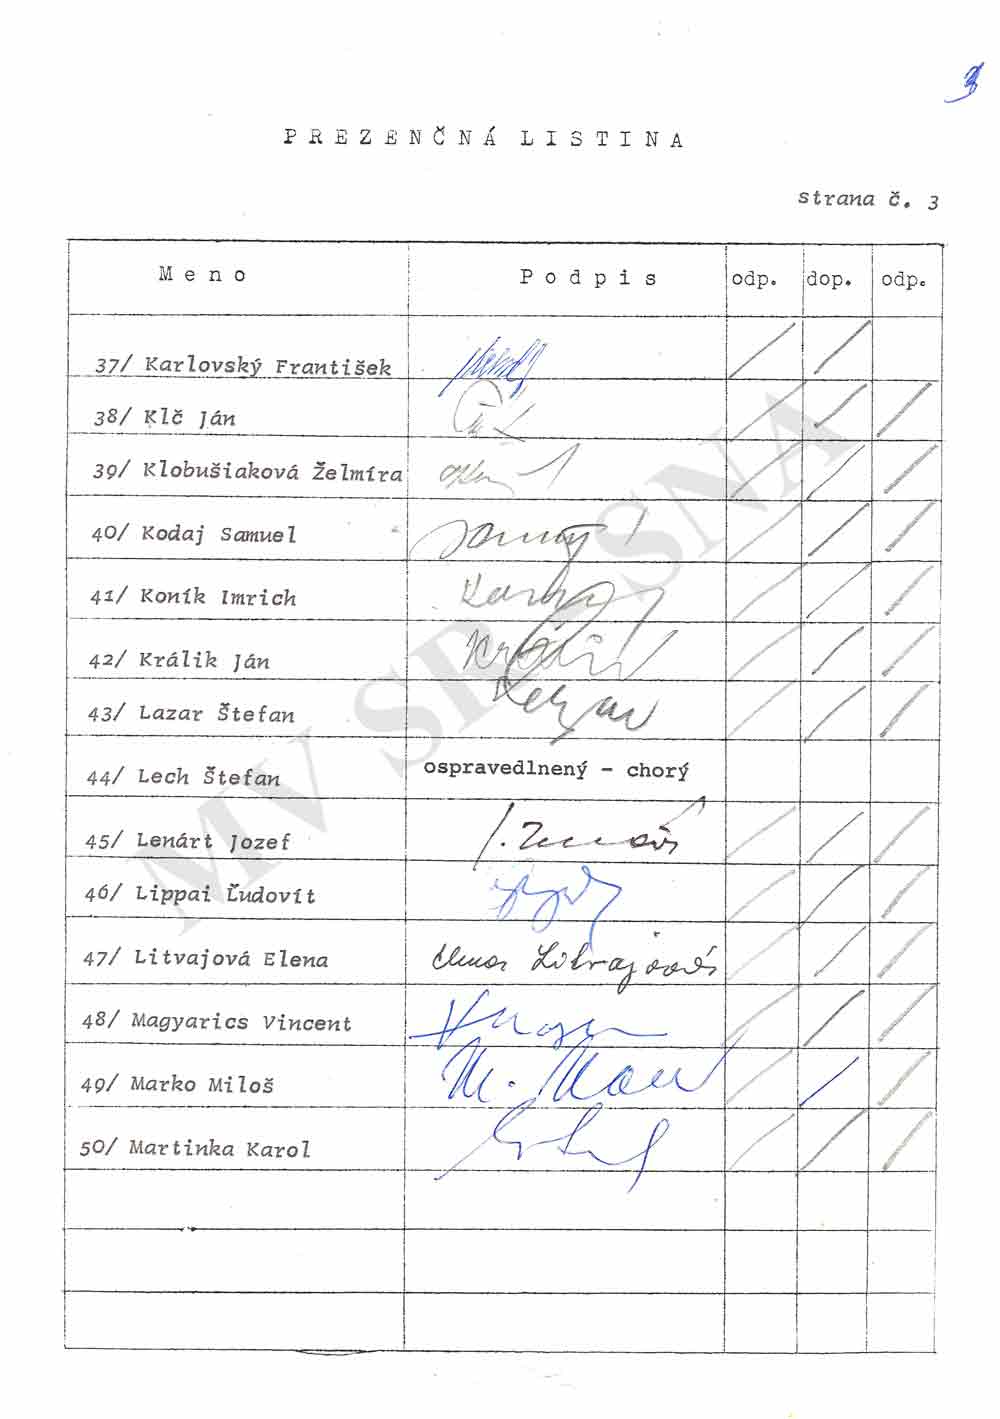 3
PREZENČNÁ LISTINA
strana č. 3
Meno Podpis odp. dop. odp.
37/ Karlovský František
38/ Klč Ján
39/ Klobušiaková Želmíra
40/ Kodaj Samuel
41/ Koník Imrich
42/ Králik Ján
43/ Lazar Štefan
44/ Lech Štefan ospravedlnený - chorý
45/ Lenárt Jozef
46/ Lippai Ľudovít
47/ Litvajová Elena Elena Litvajová
48/ Magyarics Vincent
49/ Marko Miloš
50/ Martinka Karol
MV SR - SNA